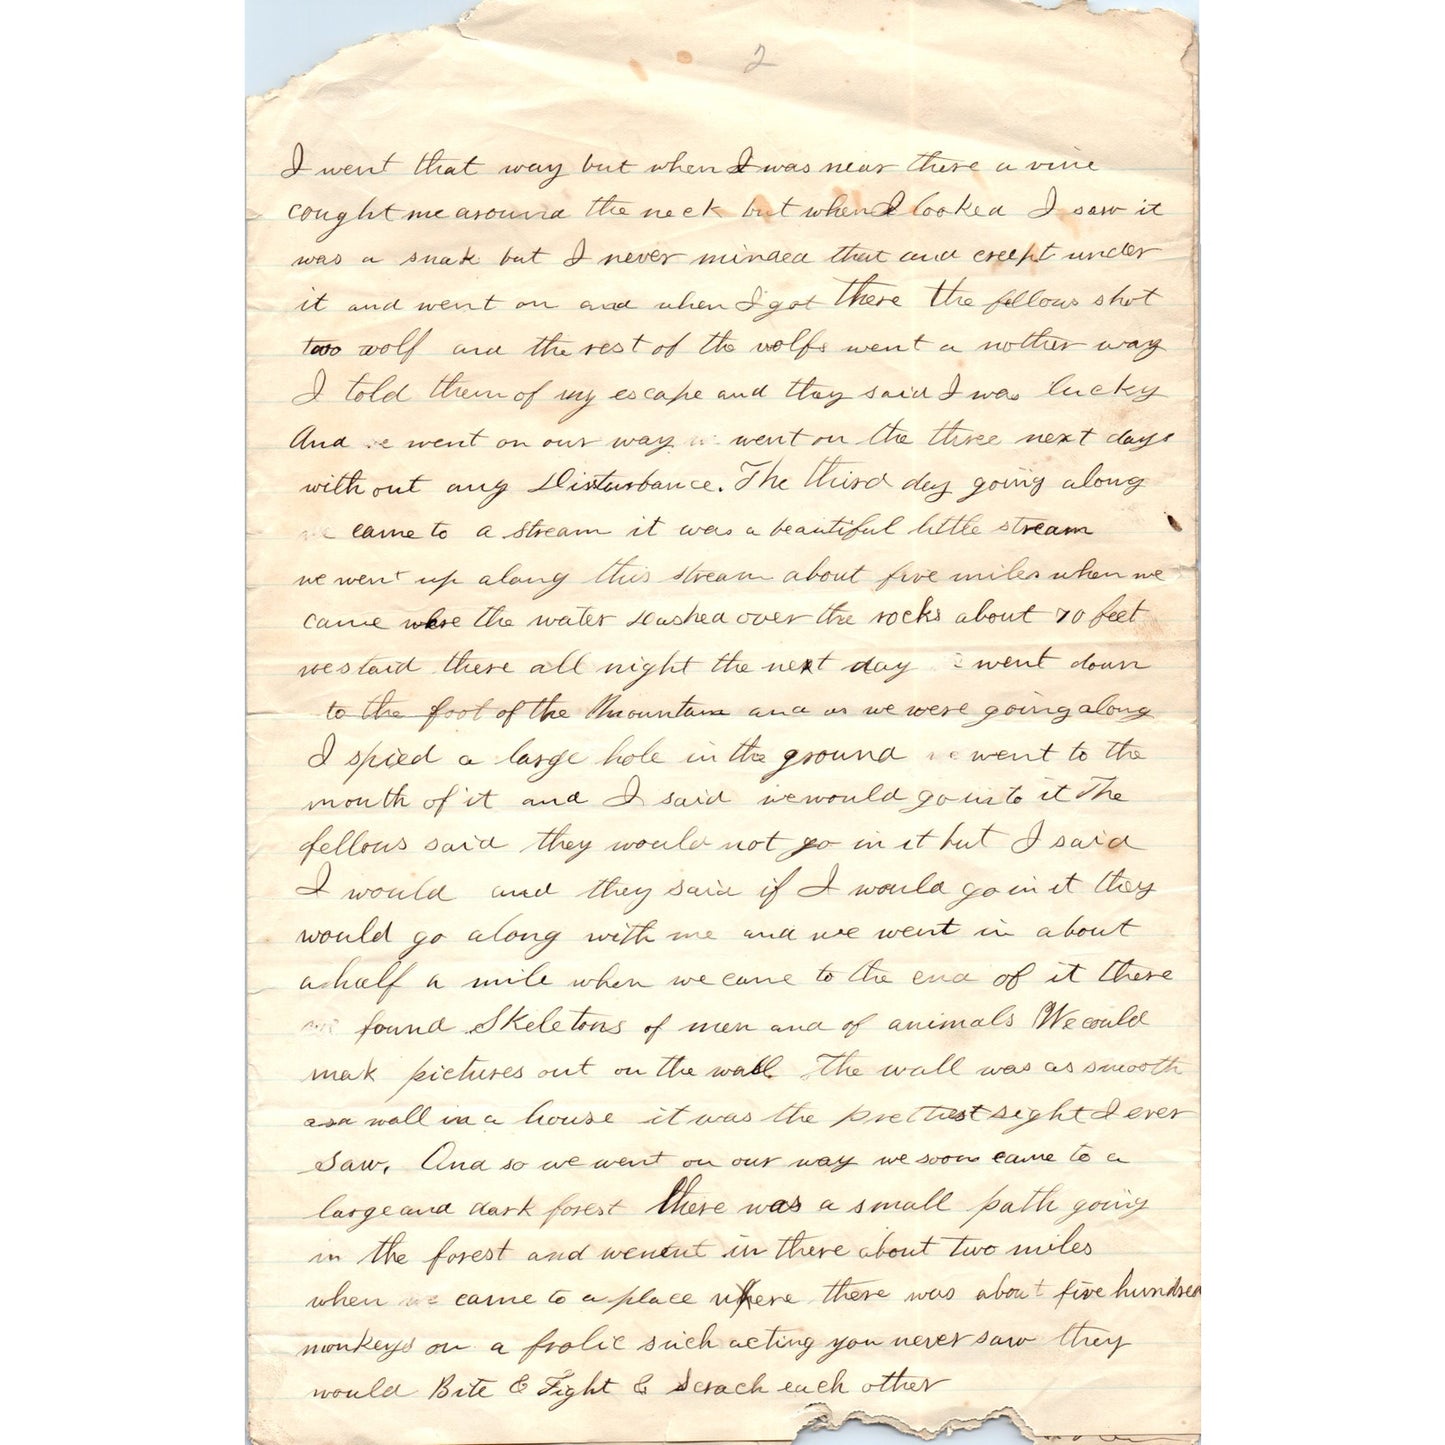 2
I went that way but when I was near there a vine
cought me around the neck but when I looked I saw it
was a snak but I never minded that and creept under
it and went on and when I got there the fellows shot
two wolf and the rest of the wolfs went a nother way
I told them of my escape and they said I was lucky
And we went on our way we went on the three next days
with out any Disturbance. The third day going along
we came to a stream it was a beautiful little stream
we went up along this stream about five miles when we
came where the water Dashed over the rocks about 70 feet
we staid there all night the next day went down
to the foot of the Mountain and as we were going along
I spied a large hole in the ground we went to the
mouth of it and I said we would go into it The
fellows said they would not go in it but I said
I would and they said if I would go in it they
would go along with me and we went in about
a half a mile when we came to the end of it there
we found Skeletons of men and of animals We could
mak pictures out on the wall. The wall was as smooth
as a wall in a house it was the prettiest sight I ever
Saw. And so we went on our way we soon came to a
large and dark forest there was a small path going
in the forest and we went in there about two miles
when we came to a place where there was about five hundred
monkeys on a frolic such acting you never saw they
would Bite & Fight & Scrach each other